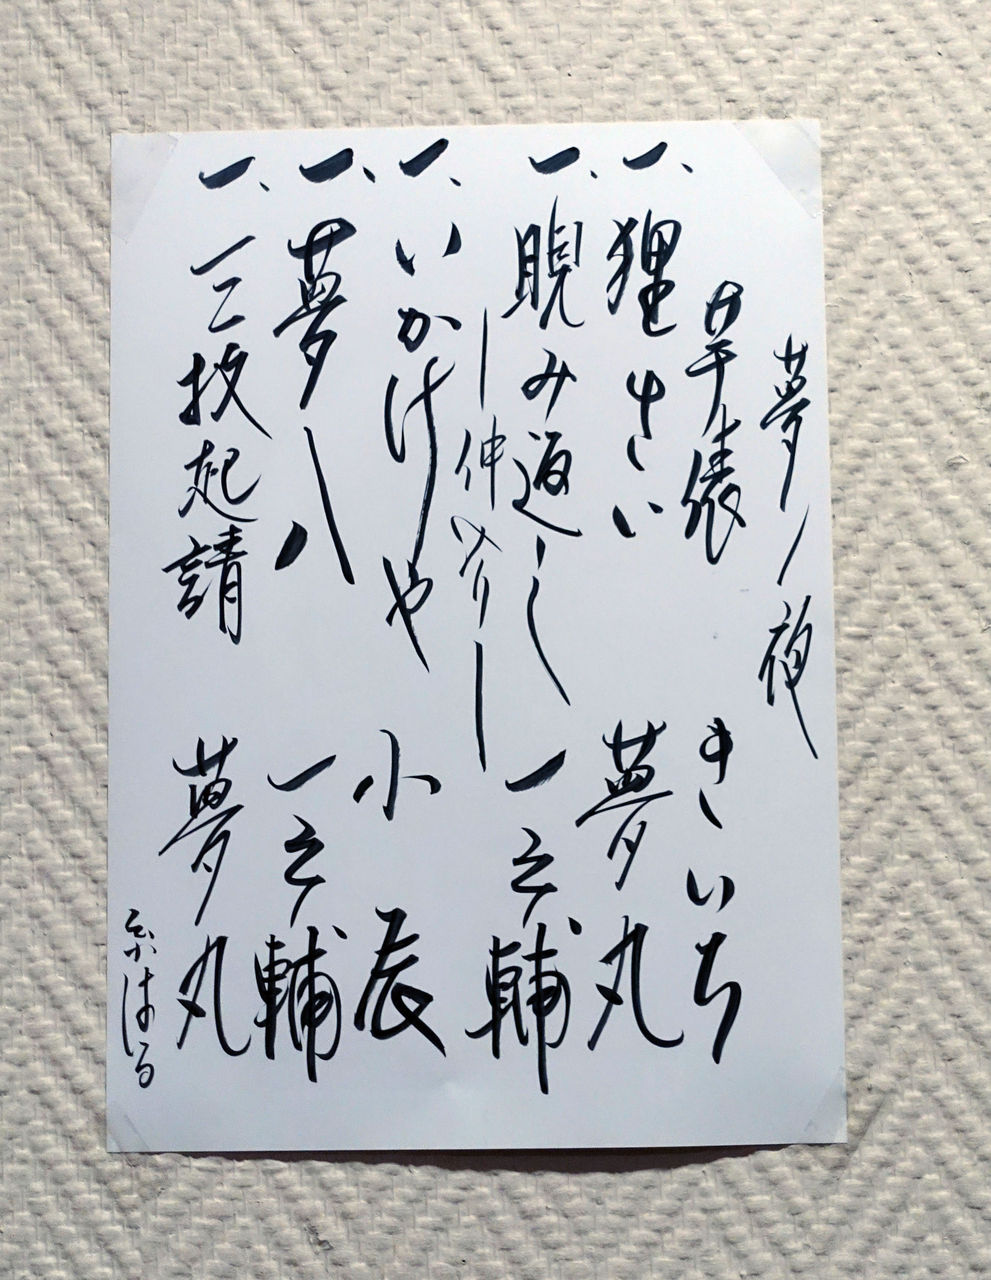 夢ノ夜
芋俵 きいち
一、狸さい 夢丸
一、睨み返し 一之輔
―仲入り―
一、いかけや 小辰
一、夢八 一之輔
一、三枚起請 夢丸
はる